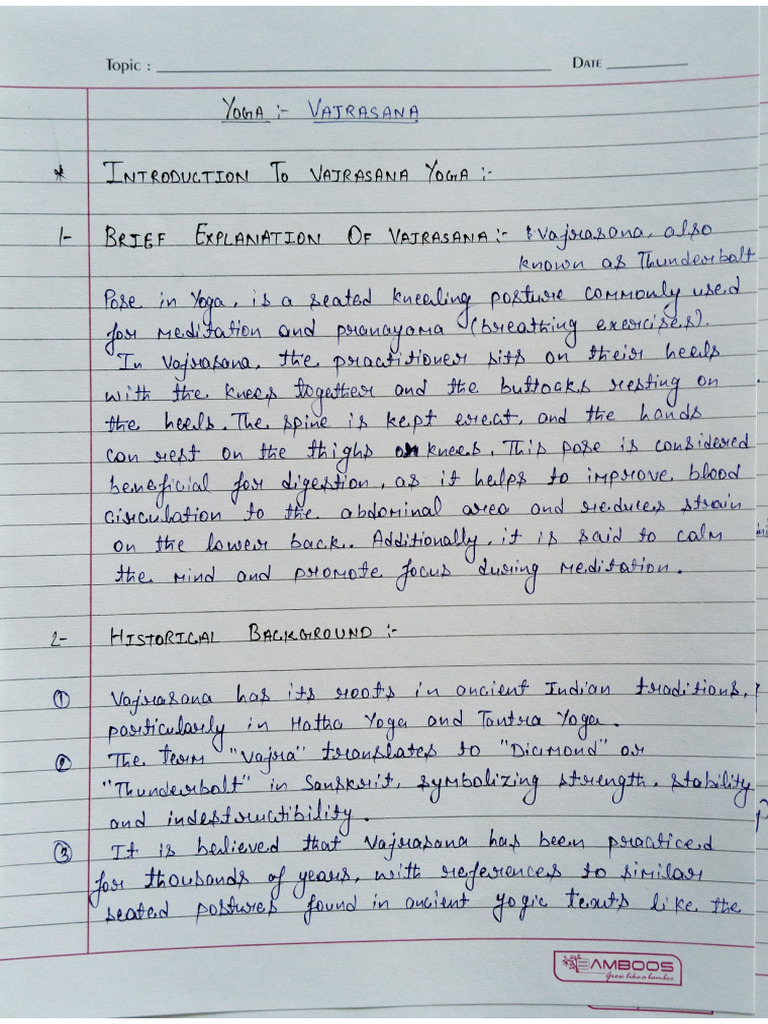 Topic : DATE
YOGA :- VAJRASANA
* INTRODUCTION TO VAJRASANA YOGA :-
1- BRIEF EXPLANATION OF VAJRASANA :- Vajrasana, also
known as Thunderbolt
Pose in Yoga, is a seated kneeling posture commonly used
for meditation and pranayama (breathing exercises).
In Vajrasana, the practitioner sits on their heels
with the knees together and the buttocks resting on
the heels. The spine is kept erect, and the hands
can rest on the thighs or knees. This pose is considered
beneficial for digestion, as it helps to improve blood
circulation to the abdominal area and reduces strain
on the lower back. Additionally, it is said to calm
the mind and promote focus during meditation.
2- HISTORICAL BACKGROUND :-
① Vajrasana has its roots in ancient Indian traditions,
particularly in Hatha Yoga and Tantra Yoga.
② The term "Vajra" translates to "Diamond" or
"Thunderbolt" in Sanskrit, symbolizing strength, stability
and indestructibility.
③ It is believed that Vajrasana has been practiced
for thousands of years, with references to similar
seated postures found in ancient yogic texts like the
BAMBOOS
Grow like a bamboo